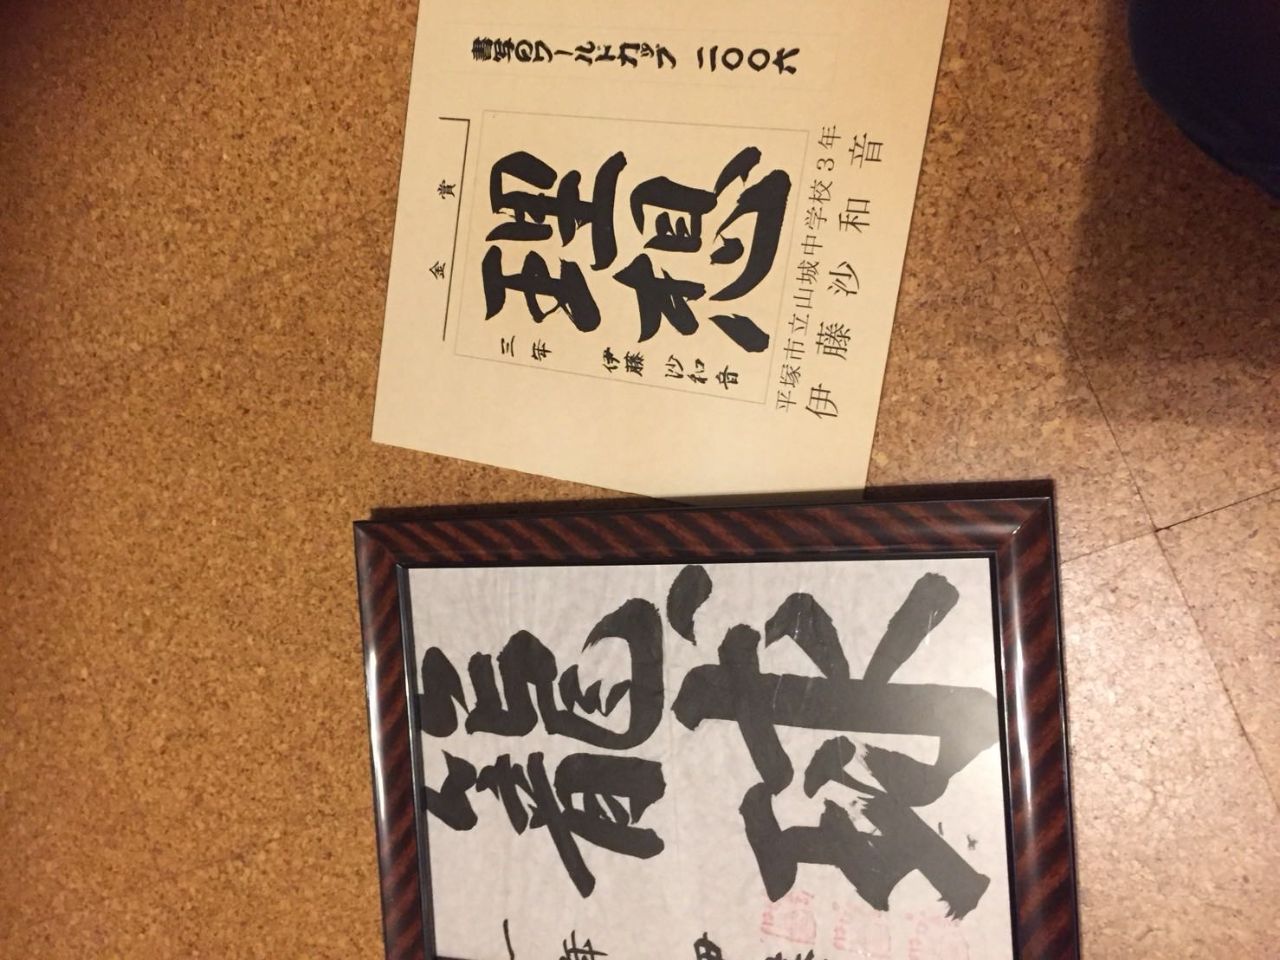 書写のワールドカップ 二〇〇六
金賞
理想
三年 伊藤沙和音
平塚市立山城中学校3年
伊藤沙和音
籠球
一年